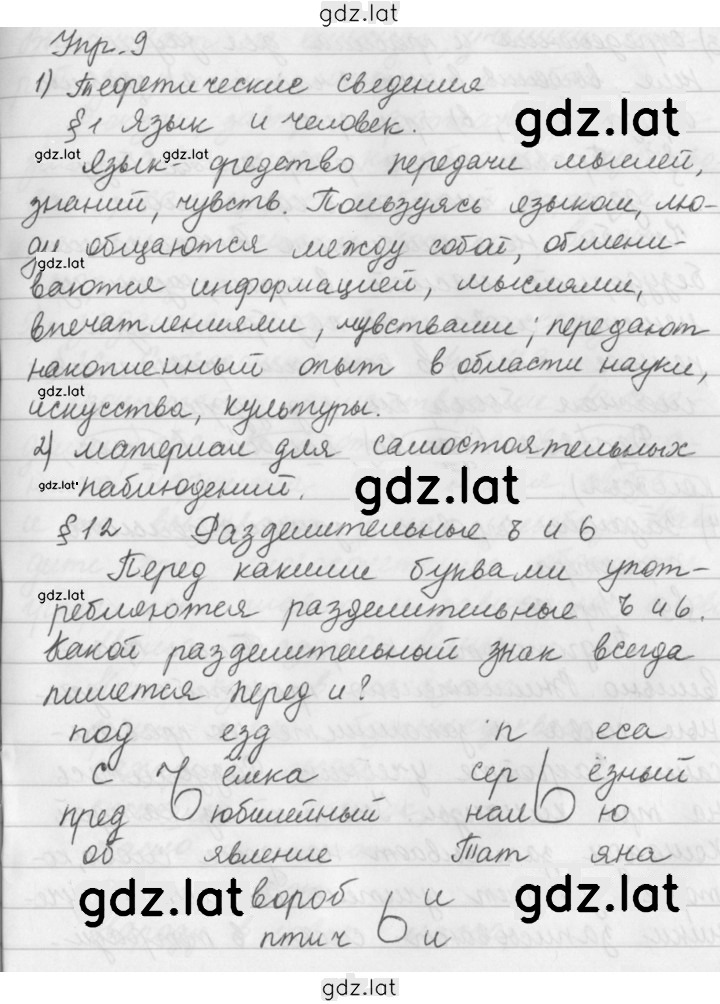 gdz.lat
Упр. 9
1) Теоретические сведения
§1 Язык и человек. gdz.lat
gdz.lat gdz.lat
Язык - средство передачи мыслей,
знаний, чувств. Пользуясь языком, лю-
ди общаются между собой, обмени-
gdz.lat
ваются информацией, мыслями,
впечатлениями, чувствами; передают
накопленный опыт в области науки,
gdz.lat
искусства, культуры.
2) материал для самостоятельных
gdz.lat наблюдений. gdz.lat
§12 Разделительные ъ и ь
Перед какими буквами упот-
gdz.lat
ребляются разделительные ъ и ь.
Какой разделительный знак всегда
пишется перед и?
под езд п еса
с ъ ёмка сер ь ёзный
пред юбилейный нал ю
об явление Тат яна
gdz.lat вороб и gdz.lat
птич ь и
gdz.lat